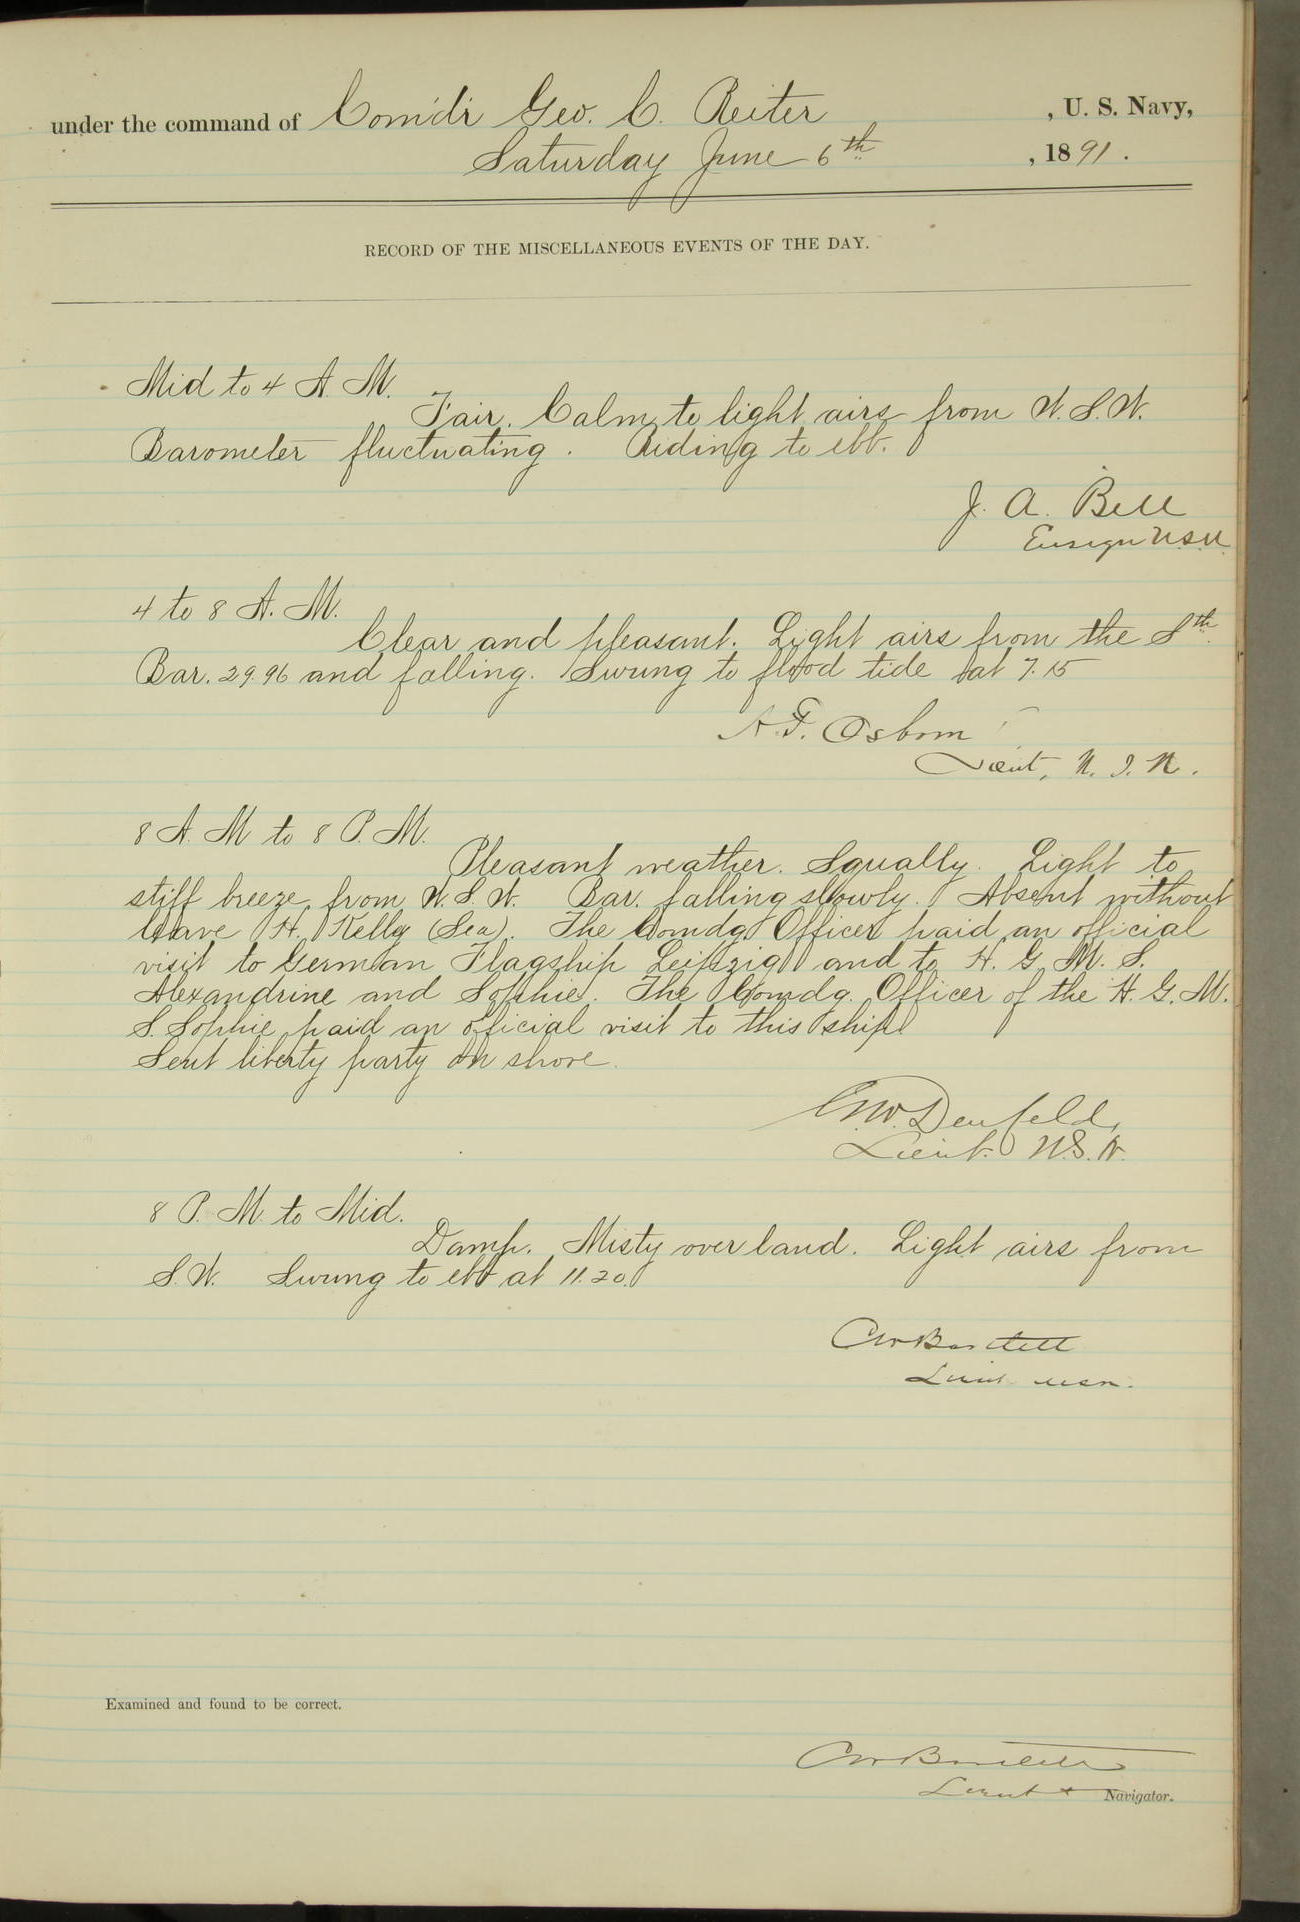 under the command of Com'dr Geo. C. Reiter , U. S. Navy,
Saturday June 6th , 1891.
RECORD OF THE MISCELLANEOUS EVENTS OF THE DAY.
Mid to 4 A. M.
Fair. Calm to light airs from W.S.W.
Barometer fluctuating. Riding to ebb.
J. A. Bell
Ensign USN
4 to 8 A. M.
Clear and pleasant. Light airs from the Sth.
Bar. 29.96 and falling. Swung to flood tide at 7.15
Osborn
Lieut,
8 A. M to 8 P. M.
Pleasant weather. Squally. Light to
stiff breeze from W.S.W. Bar. falling slowly. Absent without
leave H. Kelly (Sea). The Comdg. Officer paid an official
visit to German Flagship Leipzig and to H. G. M. S.
Alexandrine and Sophie. The Comdg. Officer of the H. G. M.
S. Sophie paid an official visit to this ship.
Sent liberty party on shore.
Denfeld,
Lieut. U.S.N.
8 P. M. to Mid.
Damp. Misty over land. Light airs from
S.W. Swung to ebb at 11.20.
CW Bartlett
Lieut USN.
Examined and found to be correct.
CW Bartlett
Lieut & Navigator.